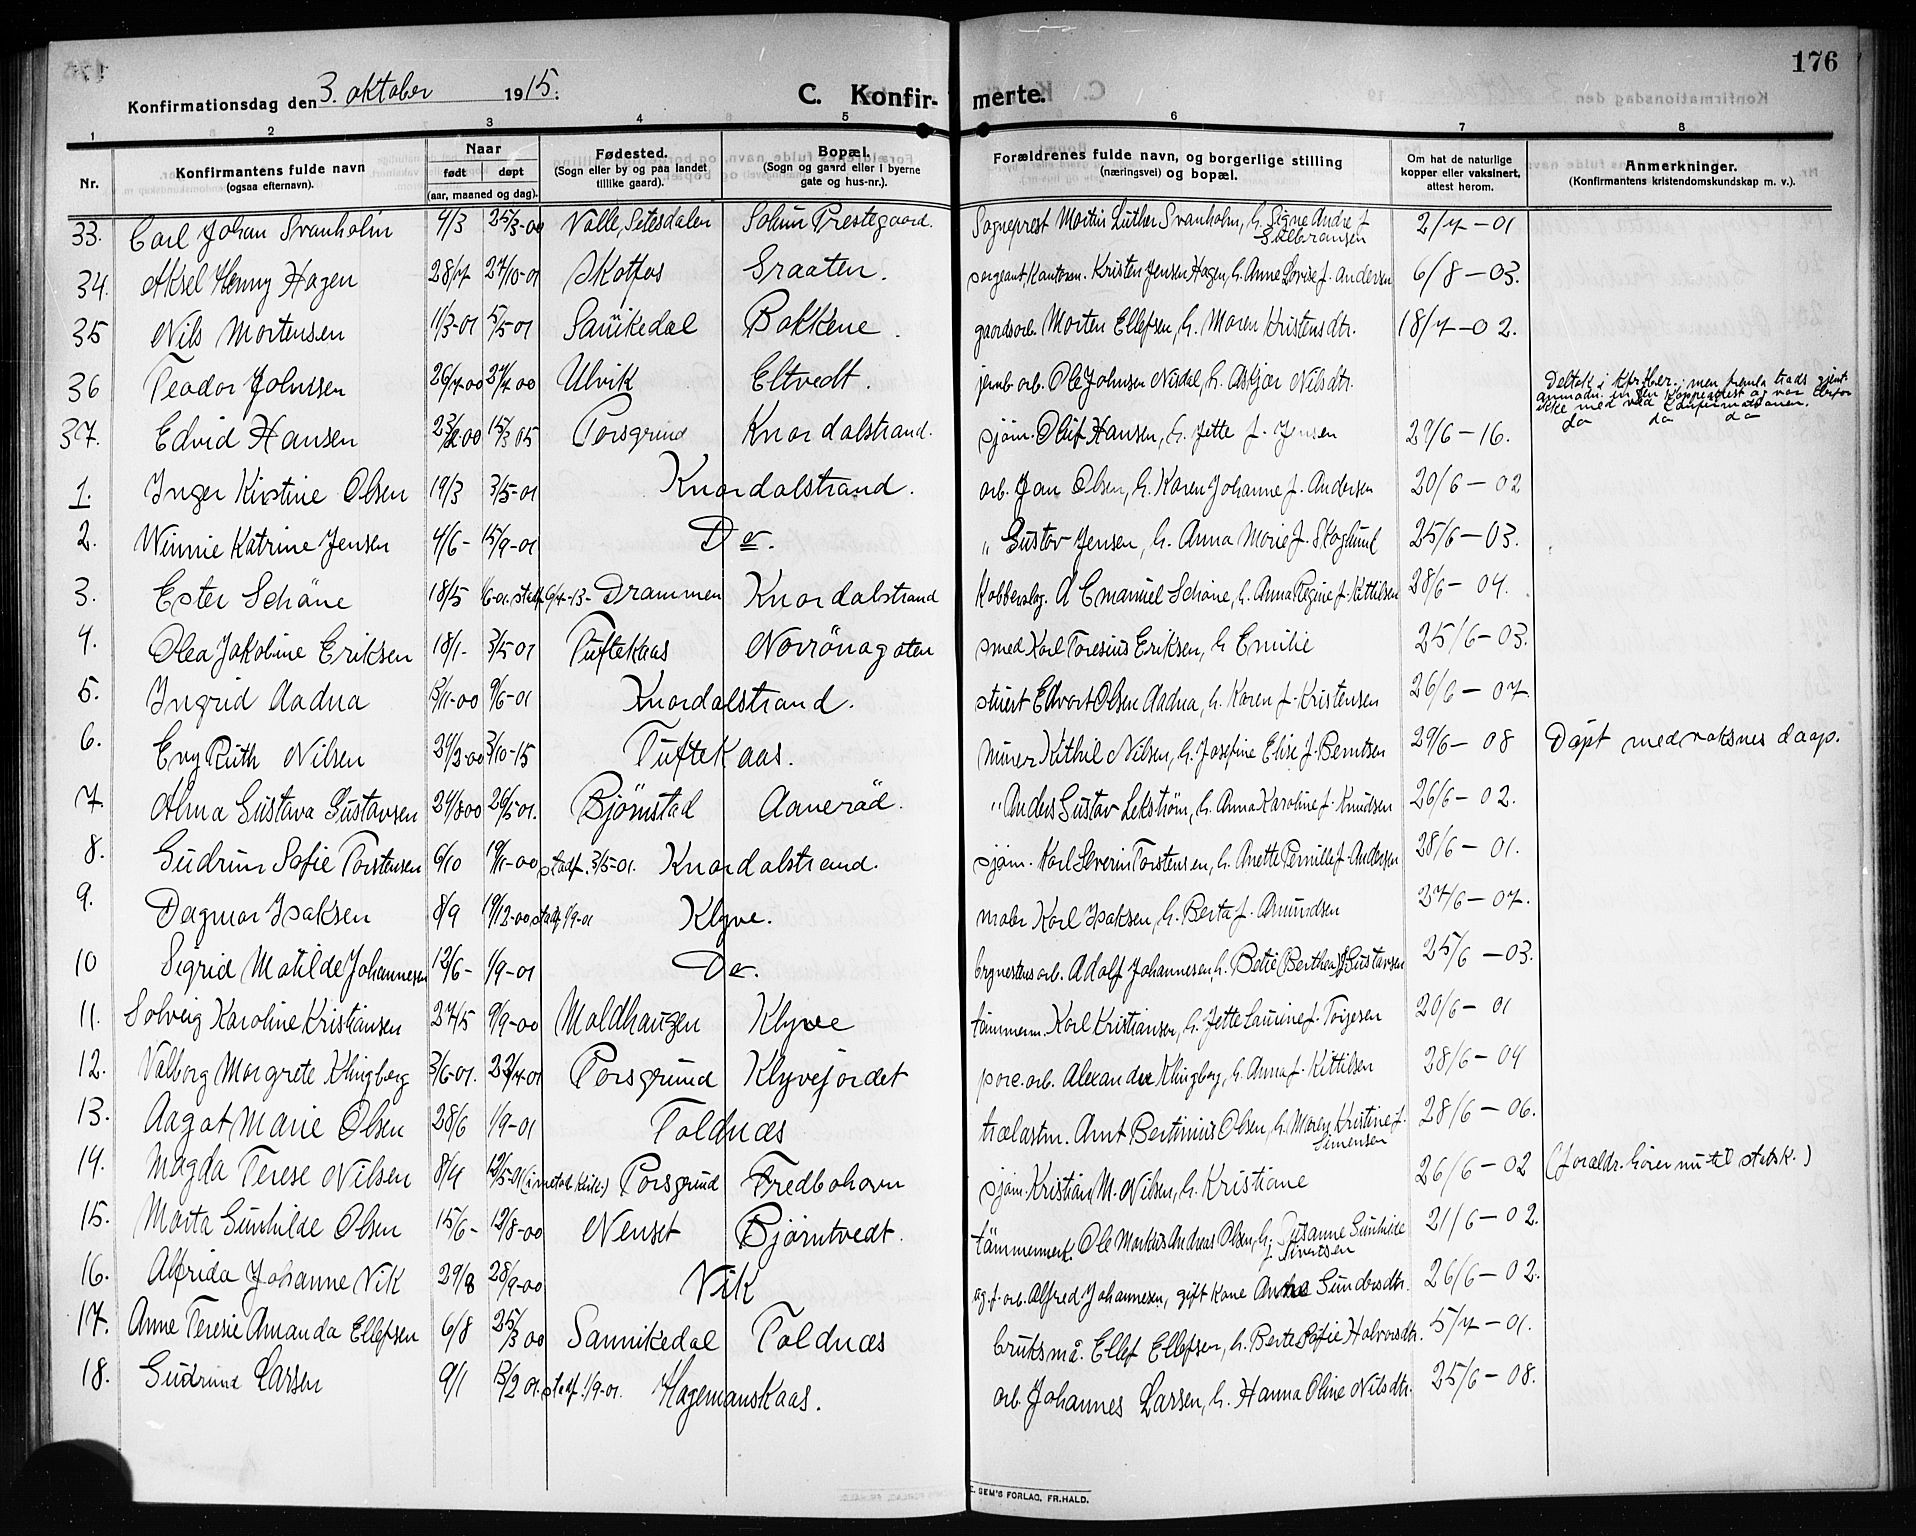 176
Konfirmationsdag den 3. oktober 1915.
C. Konfir- merte.
1 2 3 4 5 6 7 8
Nr.
Konfirmantens fulde navn
(ogsaa efternavn).
Naar
født døpt
(aar, maaned og dag).
Fødested.
(Sogn eller by og paa landet
tillike gaard).
Bopæl.
(Sogn og gaard eller i byerne
gate og hus-nr.).
Forældrenes fulde navn, og borgerlige stilling
(næringsvei) og bopæl.
Om hat de naturlige
kopper eller vaksinert,
attest herom.
Anmerkninger.
(Konfirmantens kristendomskundskap m. v.).
33. Carl Johan Svanholm 4/3 25/3-00 Valle, Setesdalen Solum Prestegaard. Sogneprest Martin Luther Svanholm, h. Signe Andre f. 2/7-01
34. Aksel Henny Hagen 28/7 27/10-01 Skotfos Graaten. sergeant, Kantorm. Kristen Jensen Hagen, h. Anne Lovise f. Andersen 6/8-03.
35 Nils Mortensen 11/3-01 5/5-01 Sanikedal Bakkene. gaardsarb. Morten Ellefsen, h. Maren Kristensdtr. 18/7-02.
36 Teodor Johnsen 26/7-00 Ulvik Eltvedt. jernb. arb. Ole Johnsen Nesdal, h. Askjær Nilsdtr. Deltok i kfrsfber. men fremla trads gjent.
ikke med ved Confirmationen.
37. Edvid Hansen 15/3 05 Porsgrund Knardalstrand. sjøm. Oluf Hansen, h. Jette f. Jensen 27/6-16. do do do
1. Inger Kirstine Olsen 19/3 3/5-01 Knardalstrand. arb. Jan Olsen, h. Karen Johanne f. Andersen 20/6-02
2. Winnie Katrine Jensen 4/6- 15/9-01 Do. " Gustav Jensen, h. Anna Marie f. Skoglund 25/6-03.
3. Ester Schöne 18/5 1/6-01. stadf. 6/4-13- Drammen Knardalstrand Kobberslag. A Emanuel Schöne, h. Anna Regine f. Kittilsen 28/6-04.
4. Olea Jakobine Eriksen 18/1- 3/5-01 Tuftekaas Norrönagaten smed Karl Toresius Eriksen, h Emilie 25/6-03.
5. Ingrid Aadna 3/11-00 9/6-01 Knardalstrand. stuert Edvart Olsen Aadna, h. Karen f. Kristensen 26/6-07.
6. Evy Ruth Nilsen 24/2-00 3/10-15 Tuftekaas. miner Kittil Nilsen, h. Josefine Elise f. Berntsen 29/6-08 Døpt med voksnes daap.
7. Alma Gustava Gustavsen 24/8 00 26/5 01. Bjørnstad Aanerød. " Anders Gustav Lekstrøm, h. Anna Karoline f. Knudsen 26/6-02.
8. Gudrun Sofie Torstensen 6/10 19/11-00 stadf. 3/5-01. Knardalstrand. sjøm. Karl Severin Torstensen, h. Anette Pernille f. Andersen 28/6-01.
9. Dagmar Isaksen 8/9 19/12-00 stadf 1/9-01 Klyve. maler Karl Isaksen, h. Berta f. Amundsen 27/6-07.
10 Sigrid Matilde Johannesen 12/6- 1/9-01 Do. brynestensarb. Adolf Johannesen, h. Betie (Berthea) f Gustavsen 25/6-03.
11. Solveig Karoline Kristiansen 27/5 9/9-00 Moldhaugen Klyve tømmerm. Karl Kristiansen, h. Jette Laurine f. Torgesen 20/6-01
12. Valborg Margrete Klingberg 3/6-01. Porsgrund Klyvejordet porc. arb. Alexander Klingberg, h. Anna f. Kittilsen 28/6-04
13. Aagot Marie Olsen 28/6 1/9-01 Toldnæs trælastm. Arnt Bertinius Olsen, h. Maren Kristine f. Simensen 28/6-06.
14. Magda Terese Nilsen 8/4 12/5-01 Porsgrund Fredbohavn sjøm. Kristian M. Nilsen, h. Kristiane 26/6-02 (foraldr. hører nu til statsk.)
15. Marta Gunhilde Olsen 15/6- 12/8-00 Nenset Bjørntvedt. tømmermek. Ole Markus Andreas Olsen, h. Susanne Gunhilde f. Sivertsen 21/6-02.
16. Alfrida Johanne Vik 29/8 28/9-00 Vik ag. f. arb. Alfred Johannesen, gift kone Anne Gundersdtr. 26/6-02.
17. Anne Teresie Amanda Ellefsen 6/8 25/3 00 Sannikedal Toldnæs bruksmå. Ellef Ellefsen, h. Berte Sofie Halvorsdtr. 5/7-01.
18. Gudrund Larsen 9/1 13/2 01. stadf. 1/9-01. Hagemanskaas. arb. Johannes Larsen, h. Hanna Oline Nilsdtr. 25/6-08.
SEM'S FORLAG, FR.HALD.